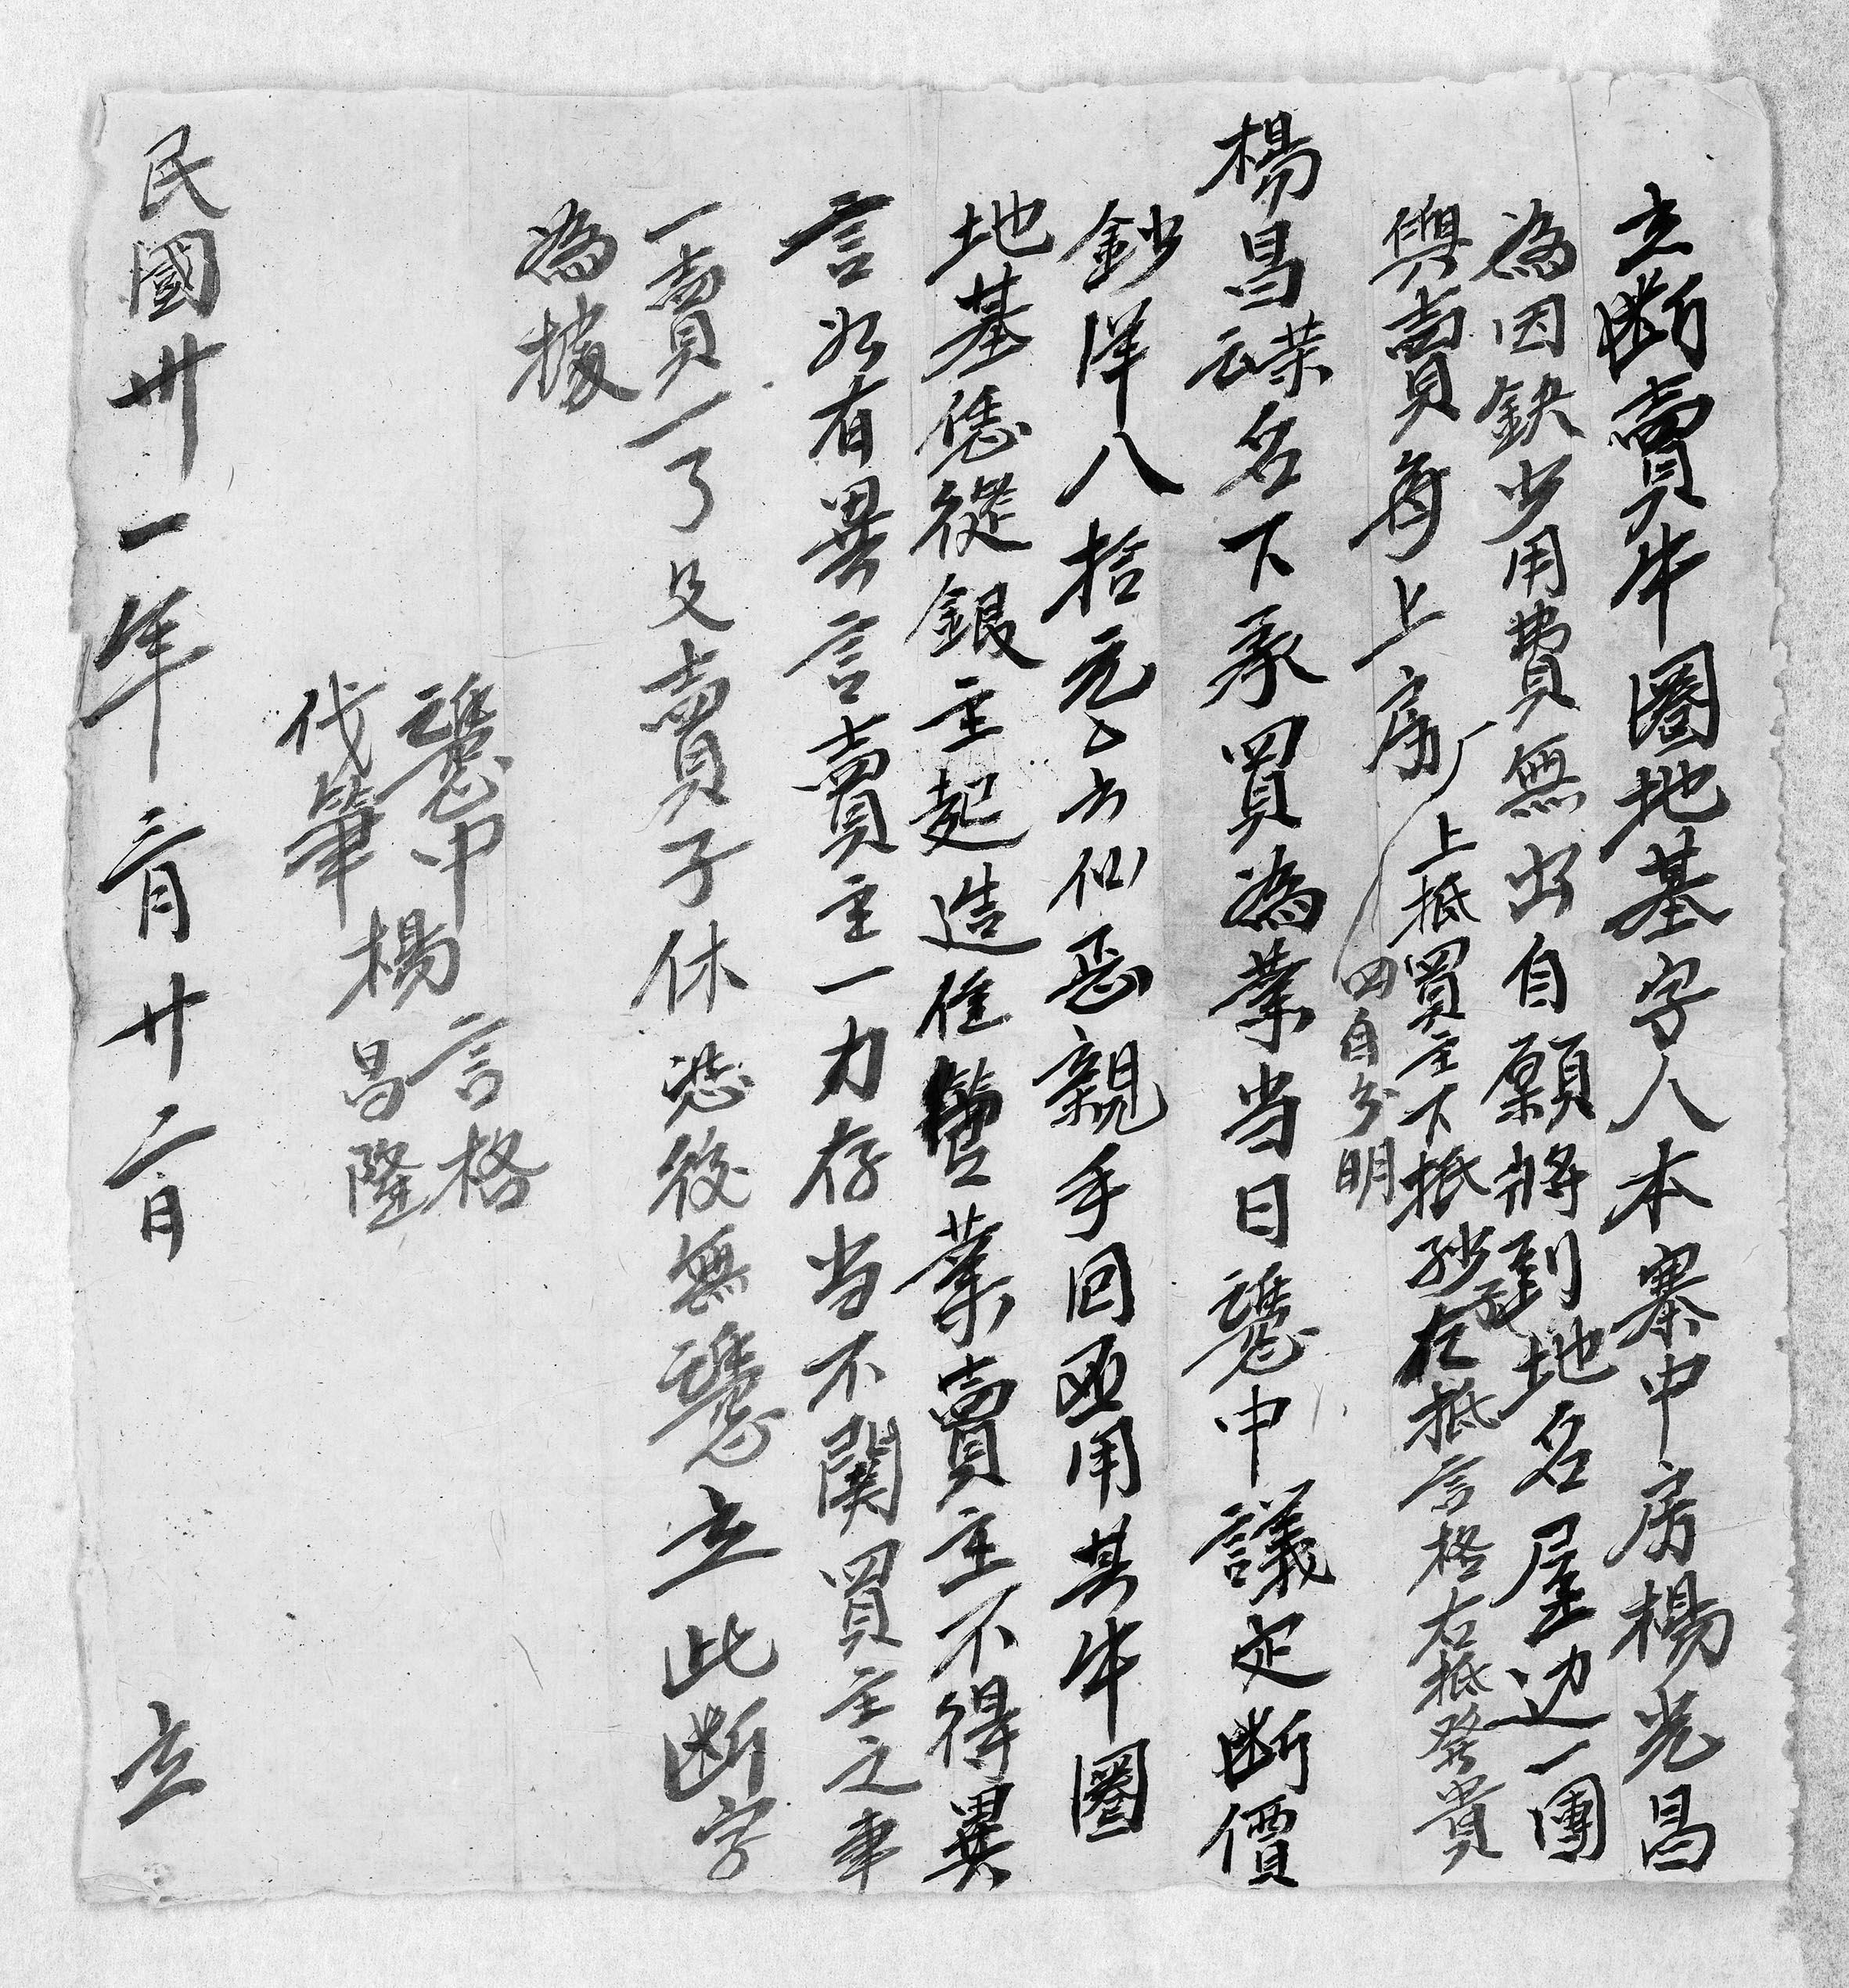 立断賣牛圈地基字人本寨中房楊光昌
為因缺少用費無出自願將到地名屋边一團
與賣每上房上抵買主下抵砂左抵言格右抵癸貴
四自分明
楊昌榮名下承買為業当日憑中議定断價
鈔洋八拾元〻六仙親手回應用其牛圈
地基憑從銀主起造住營業賣主不得異
言如有異言賣主一力存当不関買主之事
一賣一了父賣子休恐後無憑立此断字
為據
憑中 言格
代筆 楊昌隆
民國卅一年二月廿二日 立